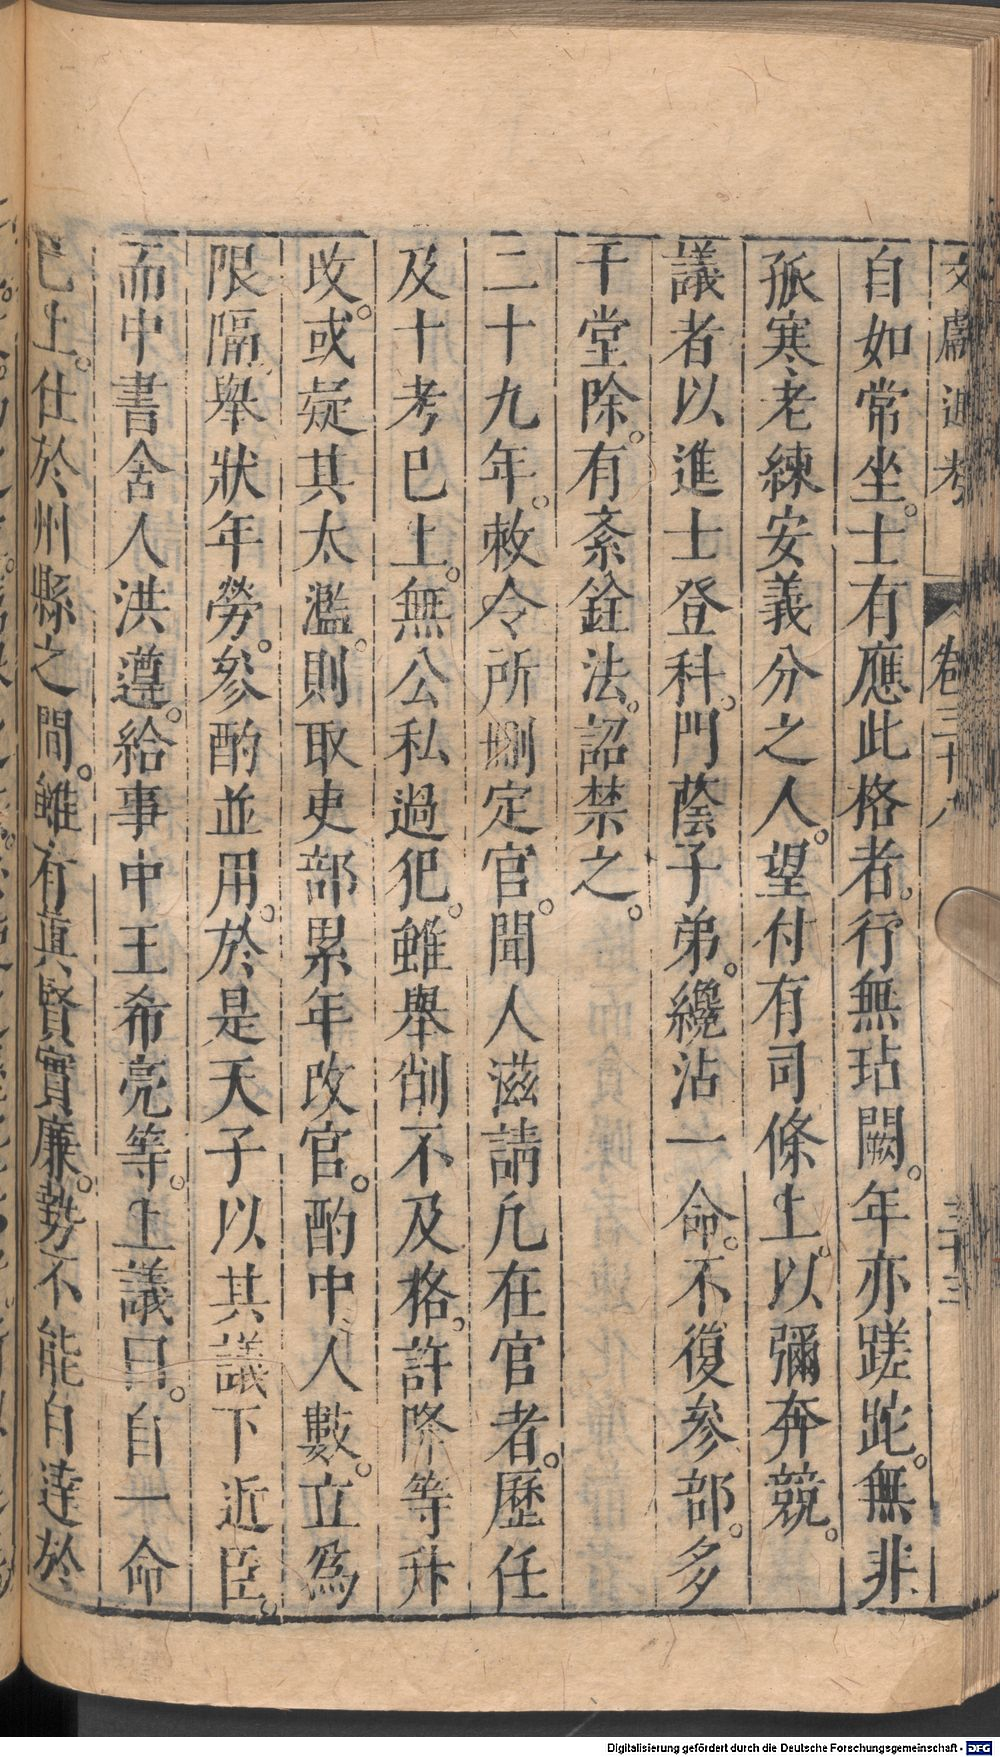 文獻通考 卷三十八 三十三
自如常坐。士有應此格者。行無玷闕。年亦蹉跎。無非
孤寒老練安義分之人。望付有司條上。以彌奔競。
議者以進士登科。門蔭子弟。纔沾一命。不復參部。多
干堂除。有紊銓法。詔禁之。
二十九年。敕令所刪定官。聞人滋請凡在官者。歷任
及十考已上。無公私過犯。雖舉削不及格。許降等升
改。或疑其太濫。則取吏部累年改官。酌中人數。立為
限隔舉狀年勞。參酌並用。於是天子以其議下近臣。
而中書舍人洪遵。給事中王希亮等。上議曰。自一命
已上。仕於州縣之間。雖有真賢實廉。勢不能自達於
Digitalisierung gefördert durch die Deutsche Forschungsgemeinschaft - DFG